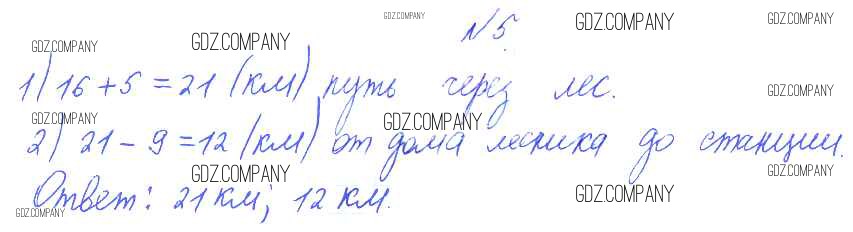 GDZ.COMPANY
№5.
GDZ.COMPANY GDZ.COMPANY GDZ.COMPANY GDZ.COMPANY
1) 16 + 5 = 21 (км) путь через лес.
GDZ.COMPANY
GDZ.COMPANY GDZ.COMPANY
2) 21 - 9 = 12 (км) от дома лесника до станции.
GDZ.COMPANY GDZ.COMPANY
Ответ: 21 км; 12 км.
GDZ.COMPANY GDZ.COMPANY